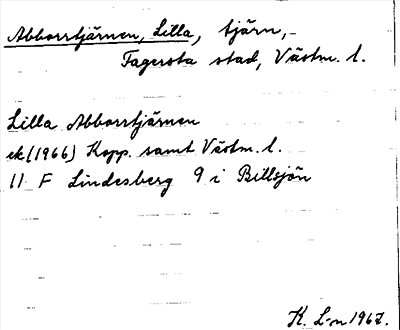 Abborrtjärnen, Lilla, tjärn,
Fagersta stad, Västm. l.
Lilla Abborrtjärnen
ek (1966) Kopp. samt Västm. l.
11 F Lindesberg 9 i Billsjön
K. L-n 1967.